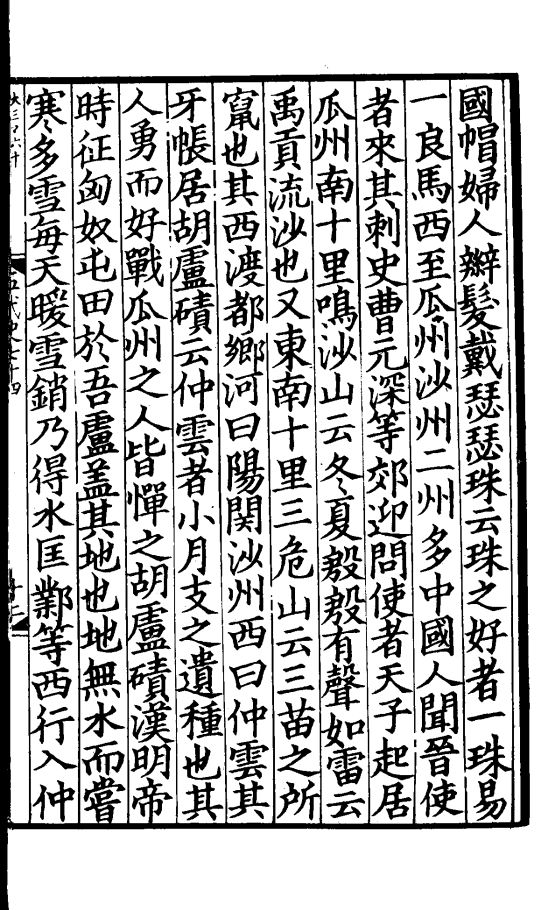 國帽婦人辮髮戴瑟瑟珠云珠之好者一珠易
一良馬西至瓜州沙州二州多中國人聞晉使
者來其刺史曹元深等郊迎問使者天子起居
瓜州南十里鳴沙山云冬夏殷殷有聲如雷云
禹貢流沙也又東南十里三危山云三苗之所
竄也其西渡都鄉河曰陽関沙州西曰仲雲其
牙帳居胡盧磧云仲雲者小月支之遺種也其
人勇而好戰瓜州之人皆憚之胡盧磧漢明帝
時征匈奴屯田於吾盧盖其地也地無水而嘗
寒多雪每天暖雪銷乃得水匡鄴等西行入仲
五代史七十四